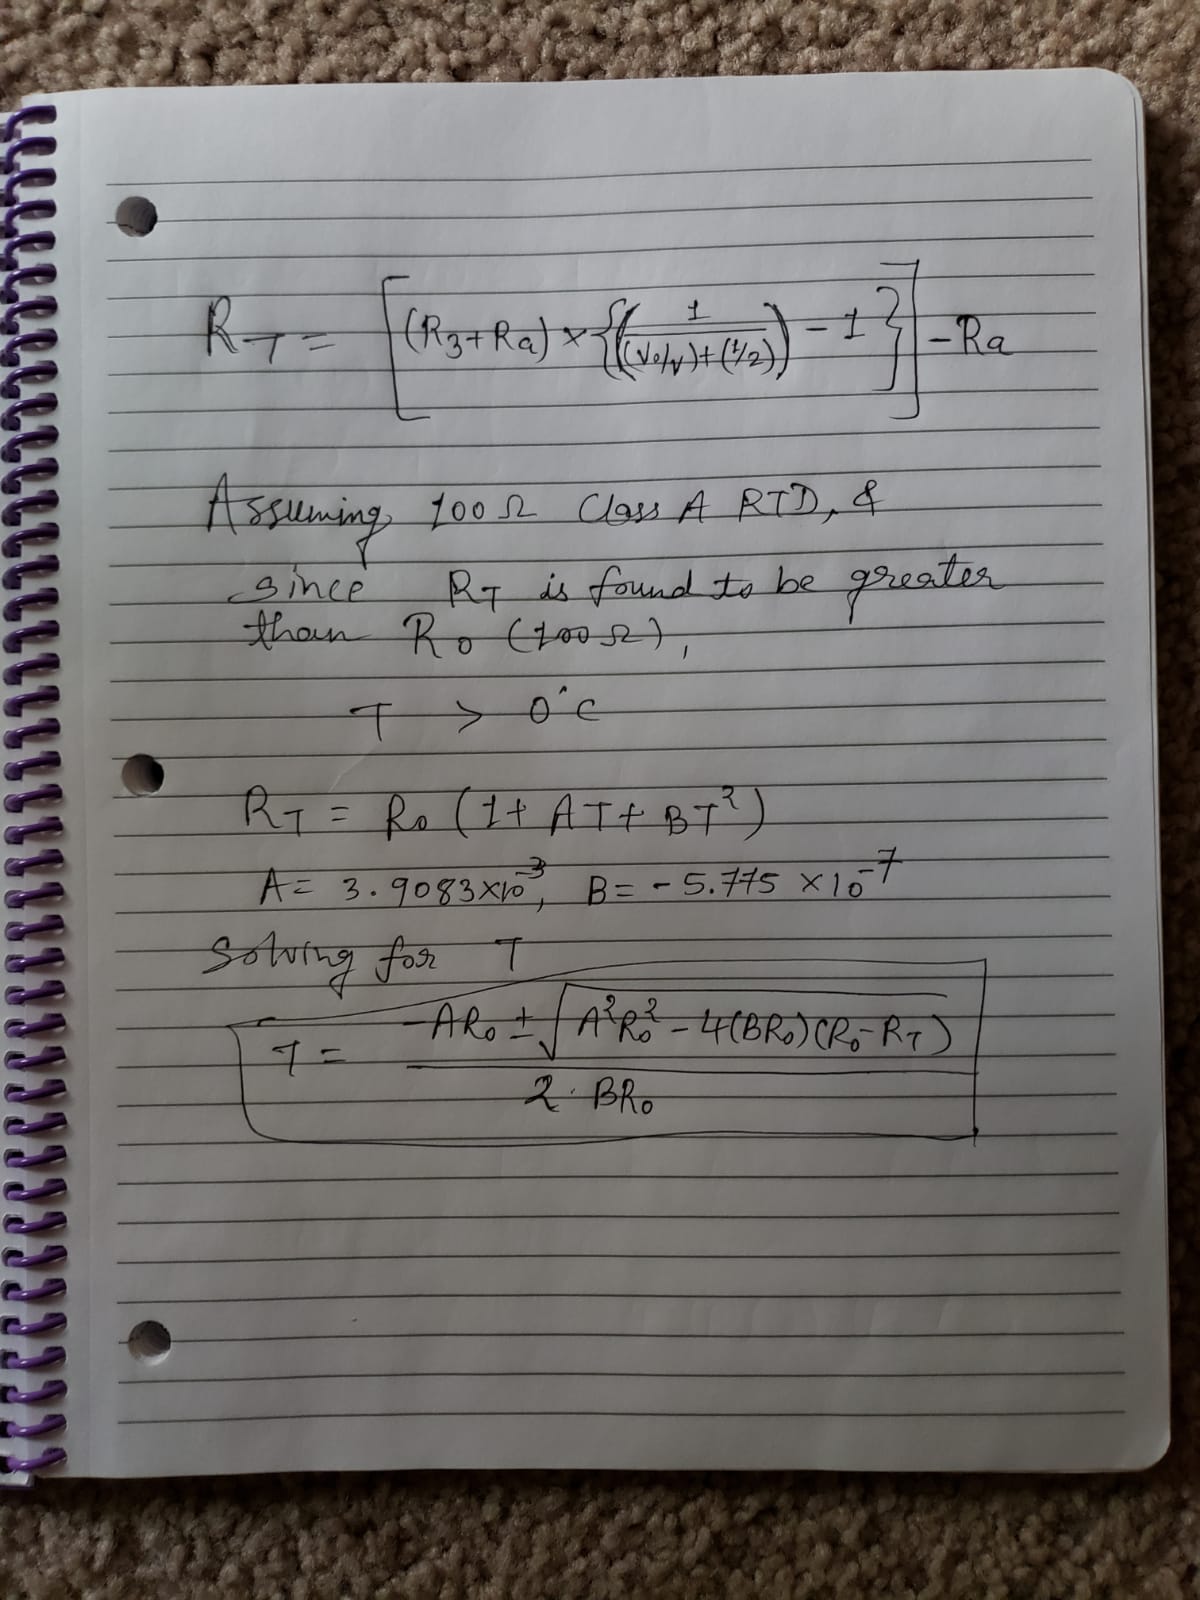 R_T = [(R3+Ra) × {(1/((Vo/V)+(1/2))) - 1}] - Ra
Assuming 100Ω Class A RTD, &
since R_T is found to be greater
than Ro (100Ω),
T > 0°C
R_T = Ro (1 + AT + BT²)
A = 3.9083×10⁻³, B = -5.775 ×10⁻⁷
Solving for T
T = (-ARo ± √(A²Ro² - 4(BRo)(Ro-R_T))) / (2·BRo)